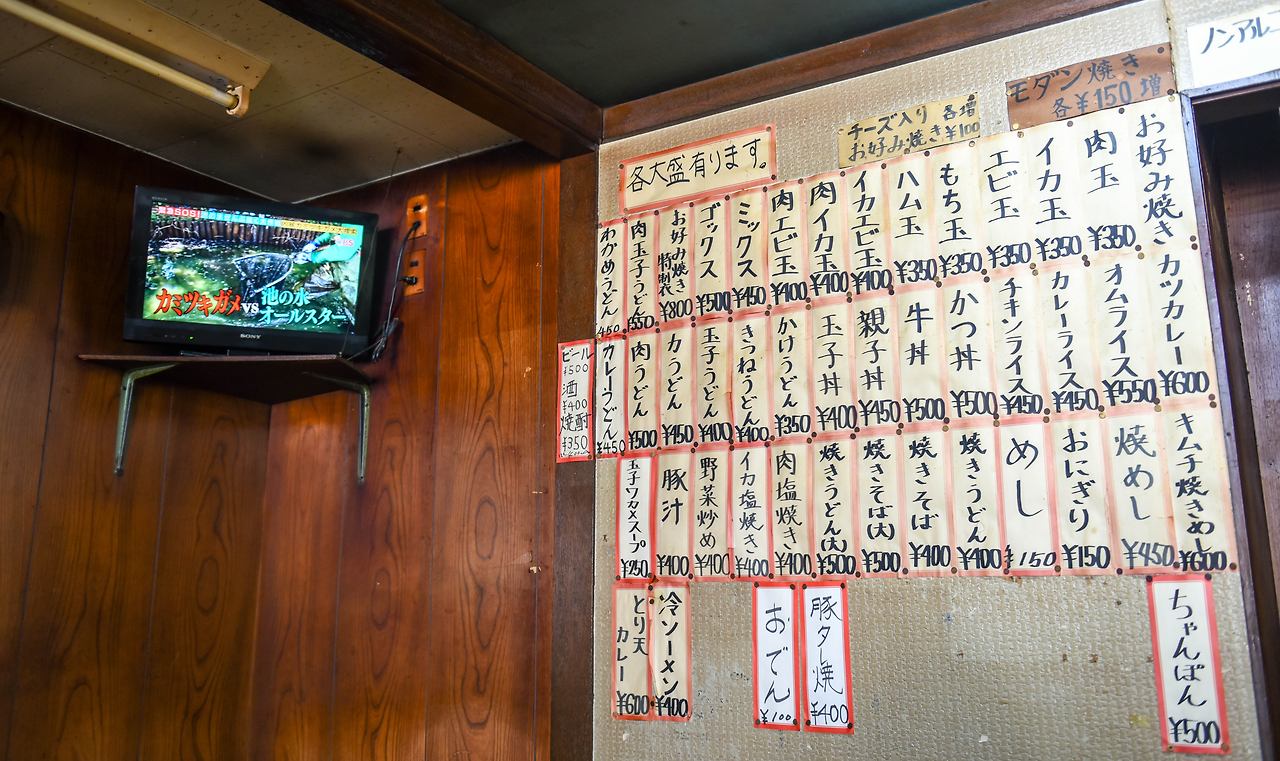 緊急SOS!
カミツキガメvs池の水
オールスター
SONY
ノンアル
モダン焼き
各¥150増
チーズ入り 各増
お好み焼き¥100
各大盛有ります。
お好み焼き
肉玉 ¥350
イカ玉 ¥350
エビ玉 ¥350
もち玉 ¥350
ハム玉 ¥350
イカエビ玉 ¥400
肉イカ玉 ¥400
肉エビ玉 ¥400
ミックス ¥450
ゴックス ¥500
お好み焼き 特製 ¥800
肉玉子うどん ¥550
わかめうどん 450
カツカレー ¥600
オムライス ¥550
カレーライス ¥450
チキンライス ¥450
かつ丼 ¥500
牛丼 ¥500
親子丼 ¥450
玉子丼 ¥400
かけうどん ¥350
きつねうどん ¥400
玉子うどん ¥400
力うどん ¥450
肉うどん ¥500
カレーうどん ¥450
ビール ¥500
酒 ¥400
焼酎 ¥350
キムチ焼きめし ¥600
焼めし ¥450
おにぎり ¥150
めし ¥150
焼きうどん ¥400
焼きそば ¥400
焼きそば(大) ¥500
焼きうどん(大) ¥500
肉塩焼き ¥400
イカ塩焼き ¥400
野菜炒め ¥400
豚汁 ¥400
玉子ワカメスープ ¥250
ちゃんぽん ¥500
豚タン焼 ¥400
おでん ¥100
冷ソーメン ¥400
とり天カレー ¥600